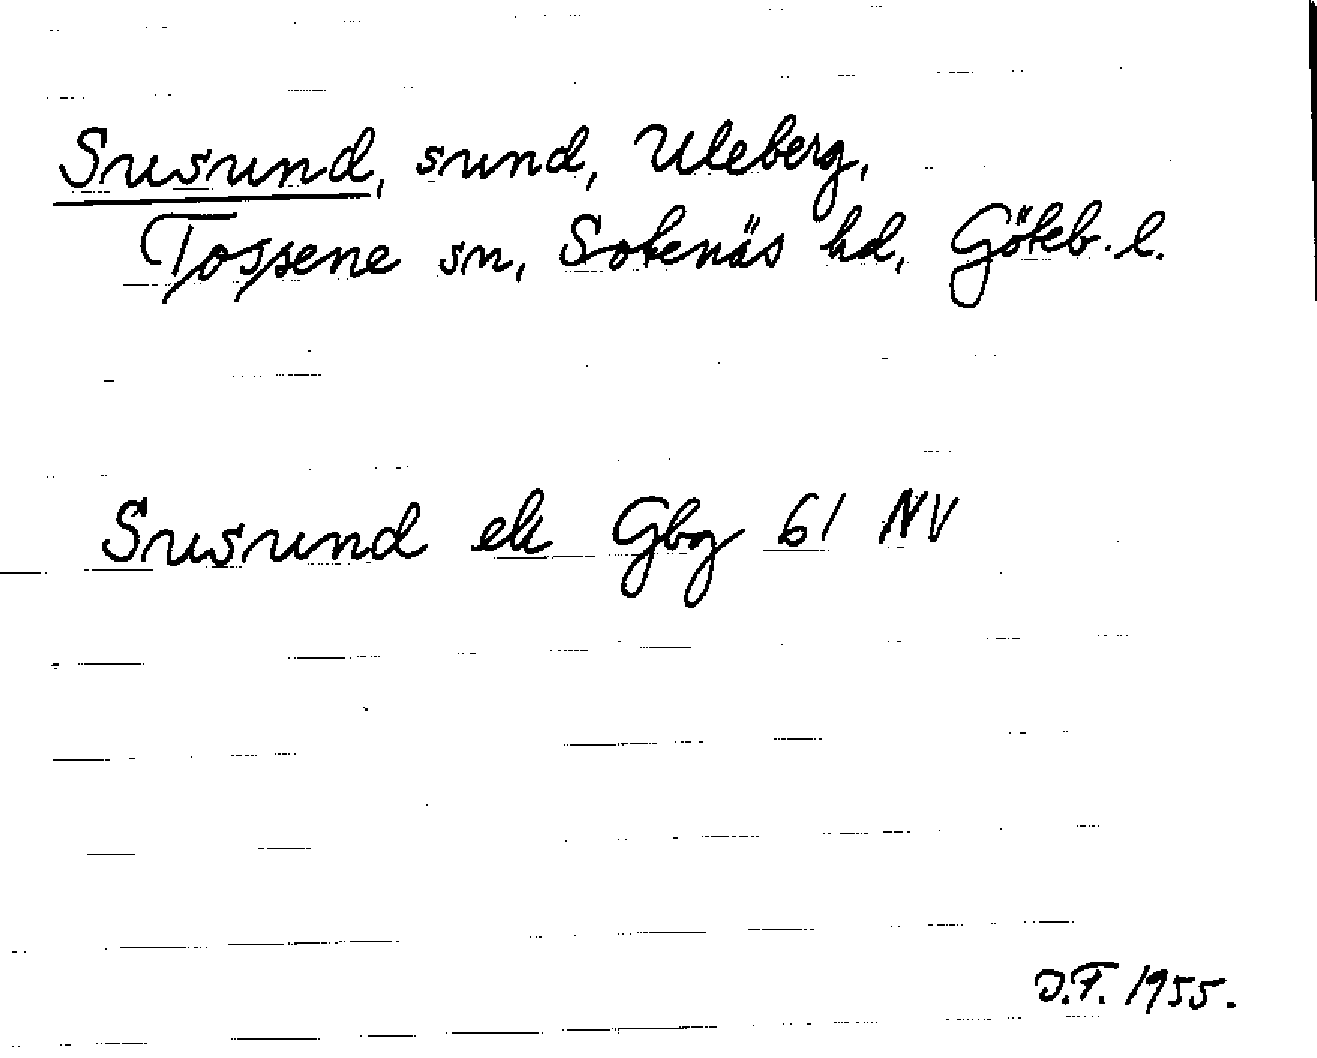 Susund, sund, Uleberg,
Tossene sn, Sotenäs hd, Göteb. l.
Susund ek Gbg 61 NV
O.F. 1955.